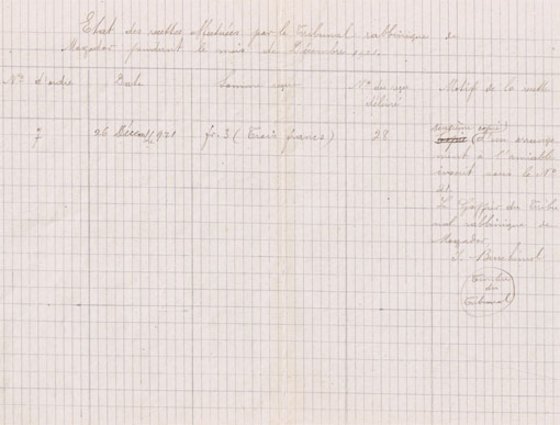 Etat des recettes effectuées par le Tribunal rabbinique de
Mogador pendant le mois de Décembre 1921.
Nos d'ordre Date Somme reçue No du reçu délivré Motif de la recette
7 26 Décembre 1921 fr. 3 (Trois francs) 28
(deuxième copie)
(d'un arrange
ment à l'amiable
inscrit sous le No
21.
Le Greffier du Tribu
nal rabbinique de
Mogador,